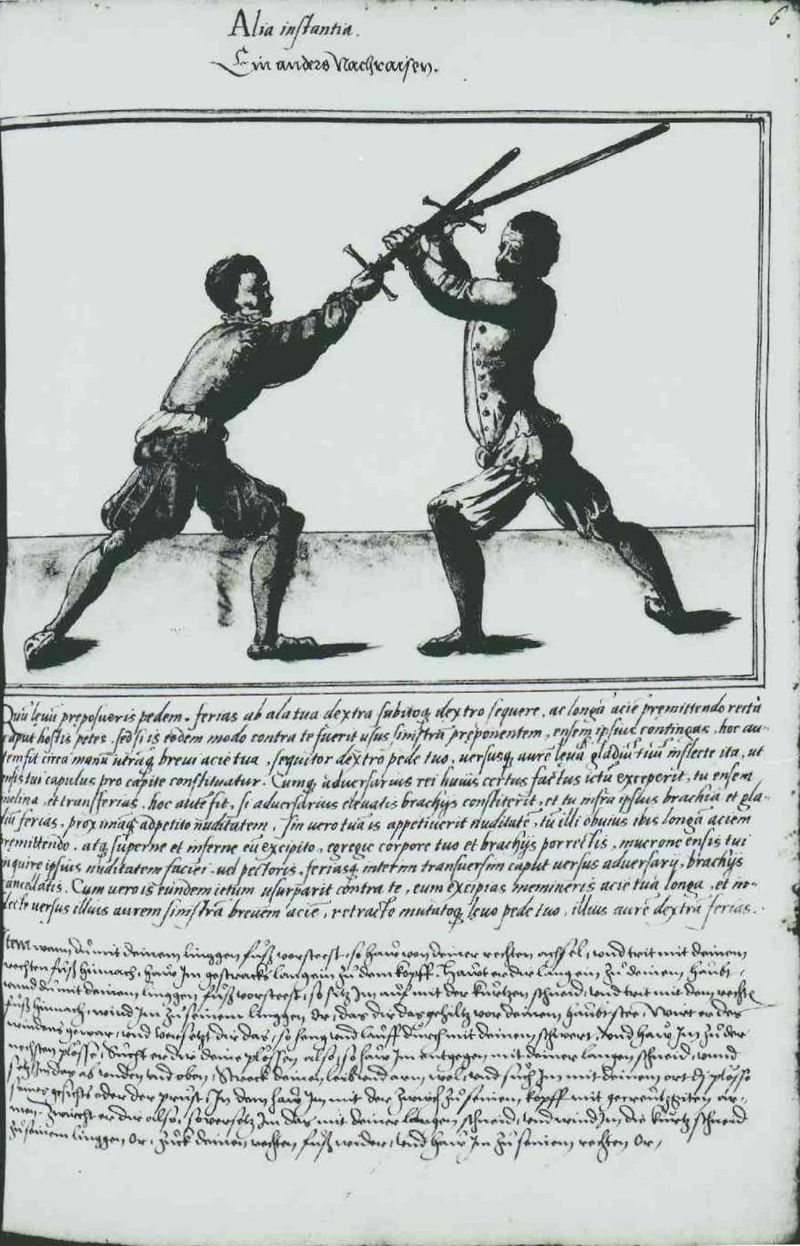 6
Alia instantia.
Ein anders Nachraisen.
Quū leuū preposueris pedem, ferias ab ala tua dextra subitoq, dextro sequere, ac longa acie premittendo recta
caput hostis petes, sed si is eodem modo contra te fuerit usus sinistrū preponentem, ensem ipsius contingas, hoc au-
tem fit circa manū utraq, brevi acie tua, sequitor dextro pede tuo, versusq, aurē leuā gladiū tuū inflecte ita, ut
ensis tui capulus pro capite constituatur. Cumq, adversarius rei huius certus factus ictū exceperit, tu ensem
inclina, et transferias, hoc aūt sit, si adversarius elevatis brachijs constiterit, et tu infra ipsius brachia et gla-
diū ferias, proximaq, adpetito nuditatem, Sin vero tua is appetiverit nuditatē, tu illi obvius ibis longa aciem
premittendo, atq, superne et inferne eū excipito, egregie corpore tuo et brachijs porrectis, mucrone ensis tui
inquire ipsius nuditatem faciei, vel pectoris, feriasq, interim transversim caput versus adversarij, brachijs
cancellatis. Cum vero is eundem ictum usurparit contra te, eum excipias memineris acie tua longa, et in-
flecto versus illius aurem sinistrā brevem aciē, retracto mutatoq, levo pede tuo, illius aurē dextrā ferias.
Item wann dū mit deinem linggen fuoß vorsteest, so haw von deiner rechten achsel, vnd trit mit deinem
rechten fuoß hinnach, haw Im gestracks lang ein zū dem kopff, Hawt er dir lang ein zū deinem haubt,
vnnd dū mit deinem linggen fuoß vorsteest, so sitz Im auf mit der kurtzen schneid, vnd trit mit dem rechte
fuoß hinnach, wind Im zū seinem linggen Or, das dir das gehiltz vor deinem haubt stee, Wirt er des
windens gewar, vnd versetzt dir das, so fang vnd lauff durch mit deinem schwert, vnd haw Im zū der
nechsten plösse, Sūcht er dir deine plössen also, so haw Im entgegen mit deiner langen schneid, vnnd
setz Im das ab vnden vnd oben, Streck deinen leib vnd arm wol, vnd sūch Im mit deinem ort dj plösse
seines gesichts oder der prūst, In dem haw Im mit der zwirch zū seinem kopff mit gecreutzgiten ar-
men, Zwircht er dir also, so versetz Im das mit deiner langen schneid, vnd wind Im die kurtz schneid
zū seinem linggen Or, zuck deinen rechten fuoß wider, vnd haw Im zū seinem rechten Or,